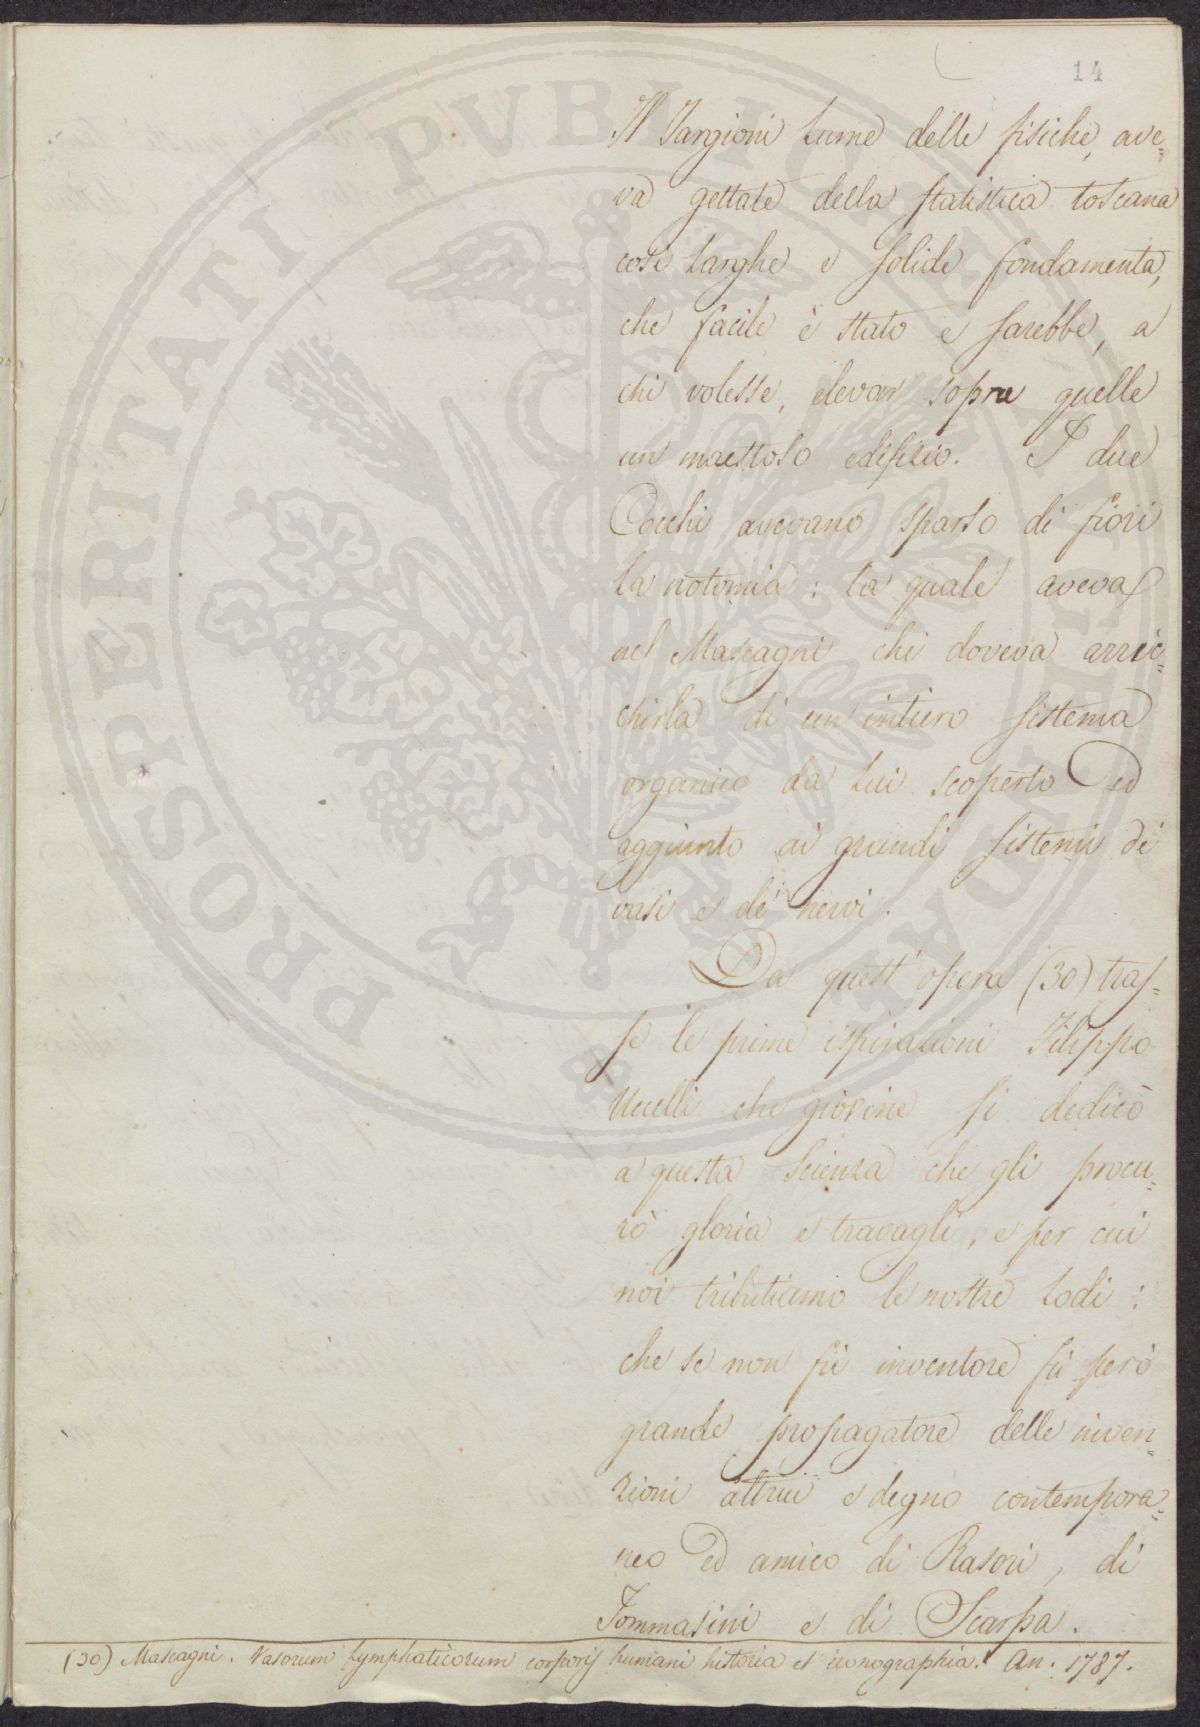 14
Il Targioni lume delle fisiche, ave=
va gettate della statistica toscana
così larghe e solide fondamenta,
che facile è stato e sarebbe, a
chi volesse, elevar sopra quelle
un maestoso edifizio. I due
Cocchi avevano sparso di fiori
la notomia: la quale aveva
nel Mascagni chi doveva arric=
chirla di un'intiero sistema
organico da lui scoperto ed
aggiunto ai grandi sistemi di
vasi e de' nervi.
Da quest'opera (30) tras=
se le prime ispirazioni Filippo
Uccelli che giovine si dedicò
a questa scienza che gli procu=
rò gloria e travagli, e per cui
noi tributiamo le nostre lodi:
che se non fù inventore fù però
grande propagatore delle inven=
zioni altrui e degno contempora=
neo ed amico di Rasori, di
Tommasini e di Scarpa.
(30) Mascagni. Vasorum lymphaticorum corporis humani historia et iconographia. An. 1787.
PROSPERITATI PUBLICAE AUGENDAE